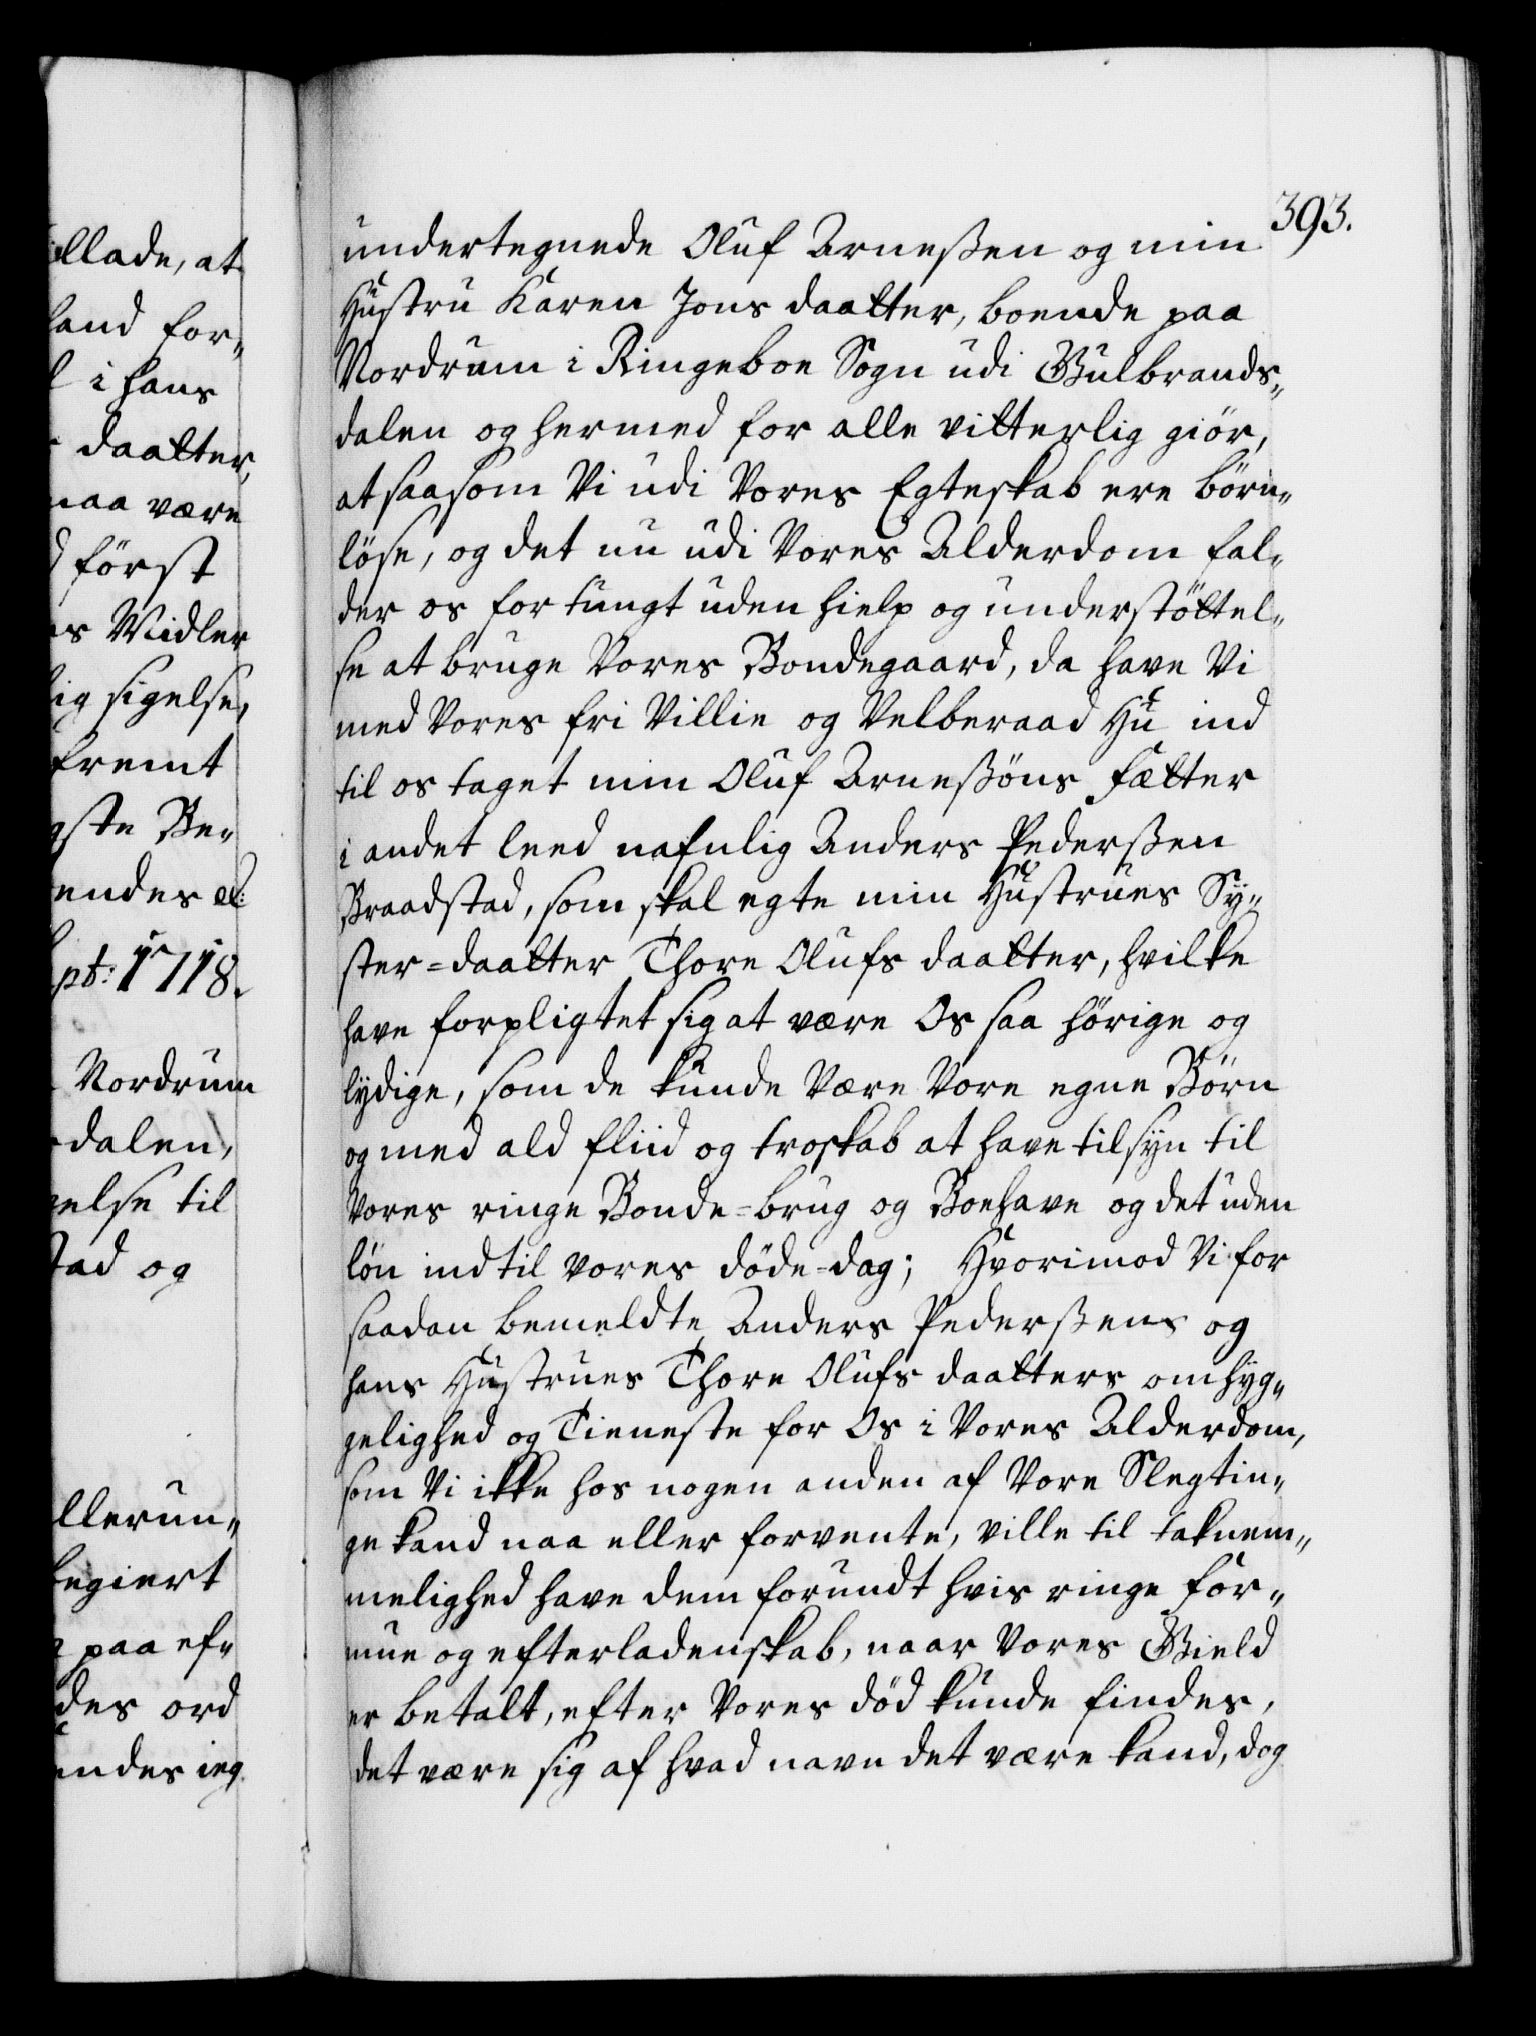 393.
llade, at
hand for„
l i hans
daatter,
maa være
d först
es Midler
lig sigelse,
fremt
gste Be„
endes etc:
pt: 1718.
Nordrum
dalen,
gelse til
stad og
llerun„
legiert
paa ef„
des ord
endes ieg
undertegnede Oluf Arneßen og min
Hustru Karen Jons daatter, boende paa
Nordrum i Ringeboe Sogn udi Gulbrands„
dalen og hermed for alle vitterlig giör,
at saasom Vi udi Vores Egteskab ere börn„
löse, og det nu udi Vores Alderdom fal„
der os for tungt uden hielp og understöttel„
se at bruge Vores Bondegaard, da have Vi
med Vores fri Villie og Velberaad Hu ind
til os taget min Oluf Arneßöns Fætter
i andet leed nafnlig Anders Pederßen
Braadstad, som skal egte min Hustrues Sy„
ster=daatter Thore Olufs daatter, hvilke
have forpligtet sig at være Os saa hörige og
lydige, som de kunde Være Vore egne Börn
og med ald fliid og troskab at have tilsyn til
Vores ringe Bonde=brug og Boehave og det uden
lön indtil vores döde=dag; Hvorimod Vi for
saadan bemeldte Anders Pederßens og
hans Hustrues Thore Olufs daatters omhyg„
gelighed og Tieneste for Os i Vores Alderdom,
som Vi ikke hos nogen anden af Vore Slegtin„
ge kand naa eller forvente, ville til taknem„
melighed have dem forundt hvis ringe for„
mue og efterladenskab, naar Vores Gield
er betalt, efter Vores död kunde findes,
det være sig af hvad navn det være kand, dog